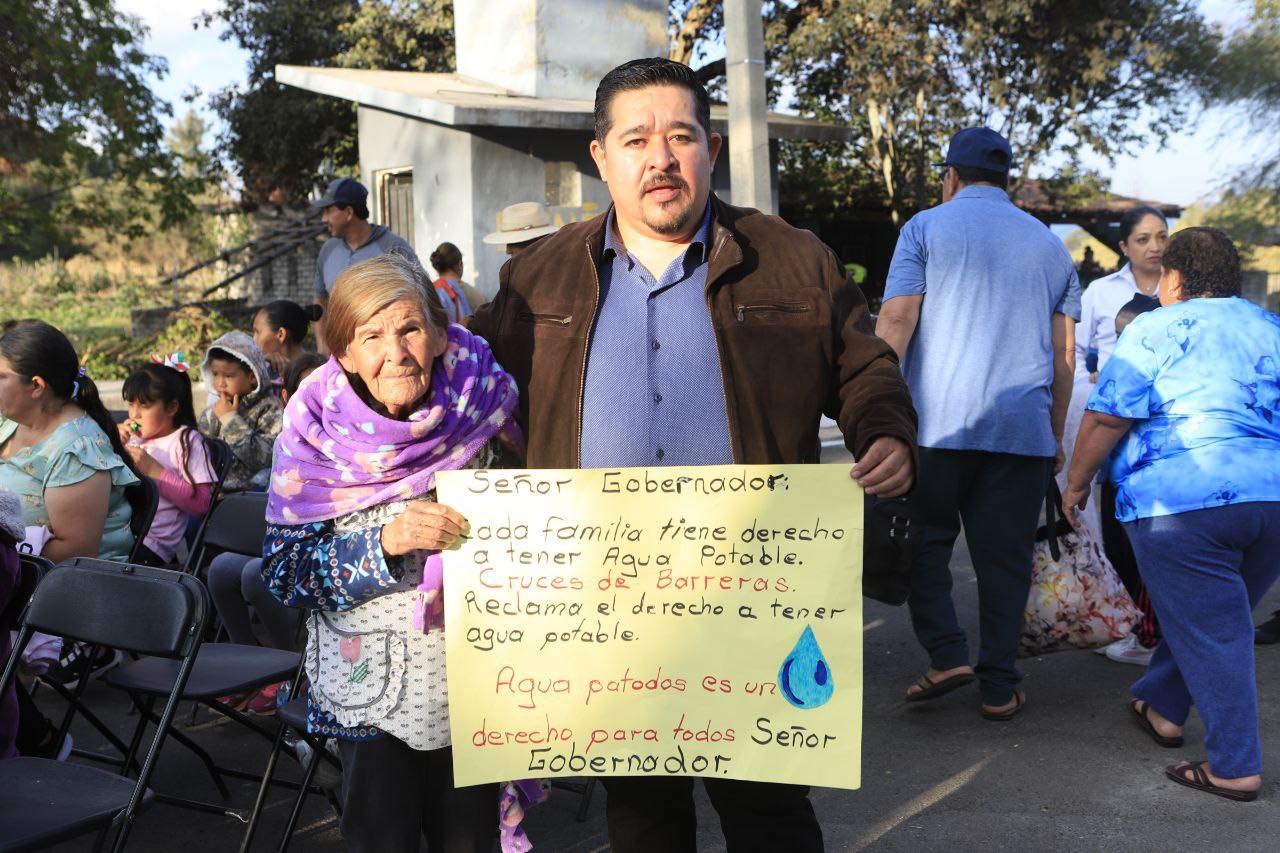 Señor Gobernador:
Cada familia tiene derecho
a tener Agua Potable.
Cruces de Barreras.
Reclama el derecho a tener
agua potable.
Agua patodos es un
derecho para todos Señor
Gobernador.